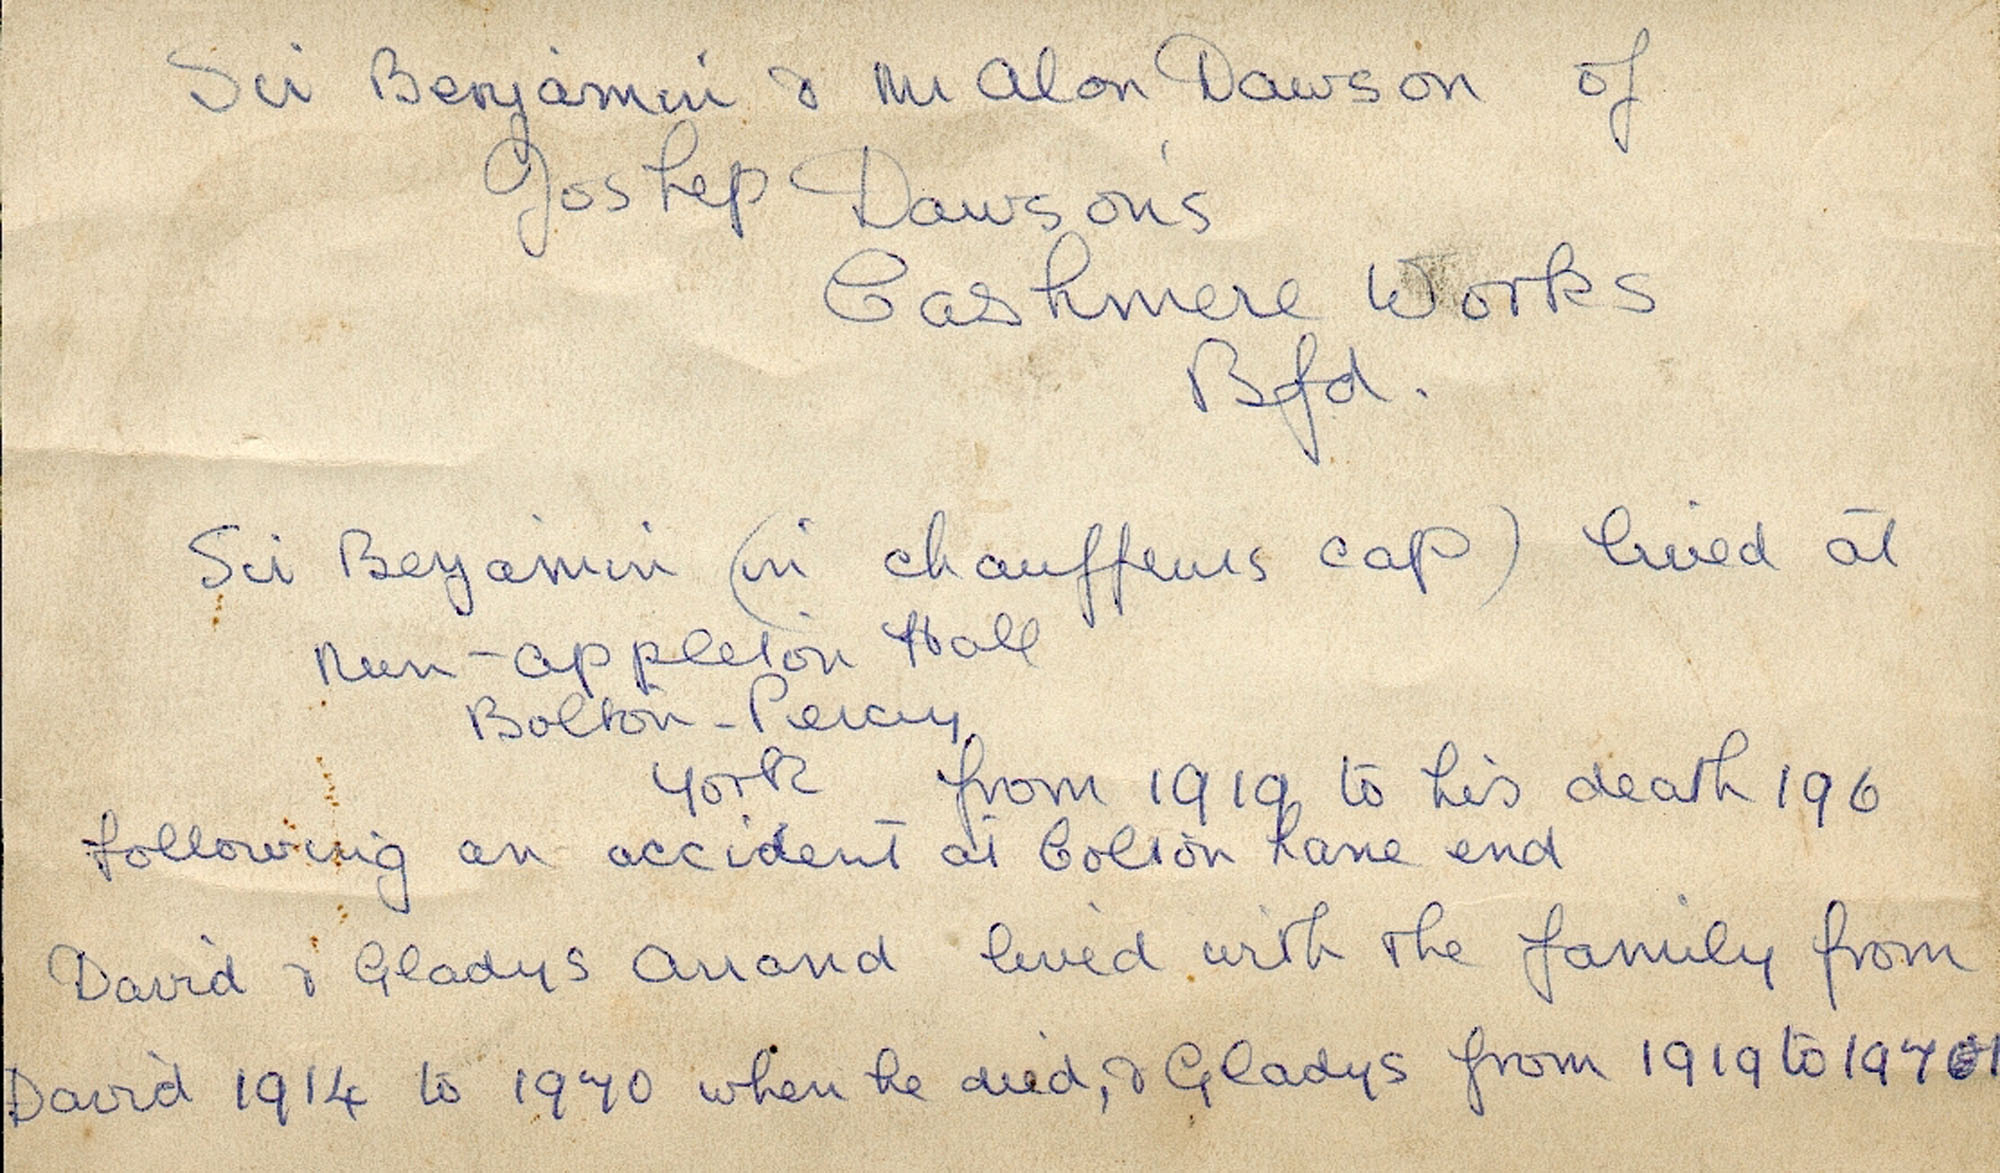 Sir Benjamin & Mr Alan Dawson of
Joshep Dawson's
Cashmere Works
Bfd.
Sir Benjamin (in chauffeurs cap) lived at
Nun-appleton Hall
Bolton-Percy
York from 1919 to his death 196
following an accident at Colton Lane end
David & Gladys Arrand lived with the family from
David 1914 to 1970 when he died, & Gladys from 1919 to